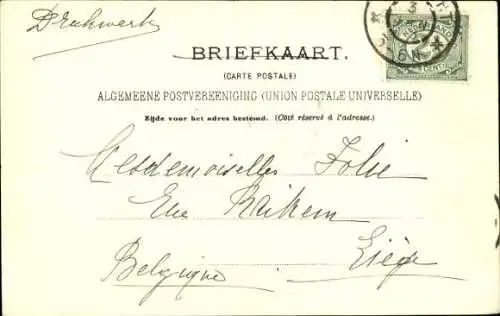 Drukwerk
BRIEFKAART.
(CARTE POSTALE)
ALGEMEENE POSTVEREENIGING (UNION POSTALE UNIVERSELLE)
Zijde voor het adres bestemd. (Côté réservé à l'adresse.)
Mesdemoiselles Folie
Rue Raikem
Liége
Belgique